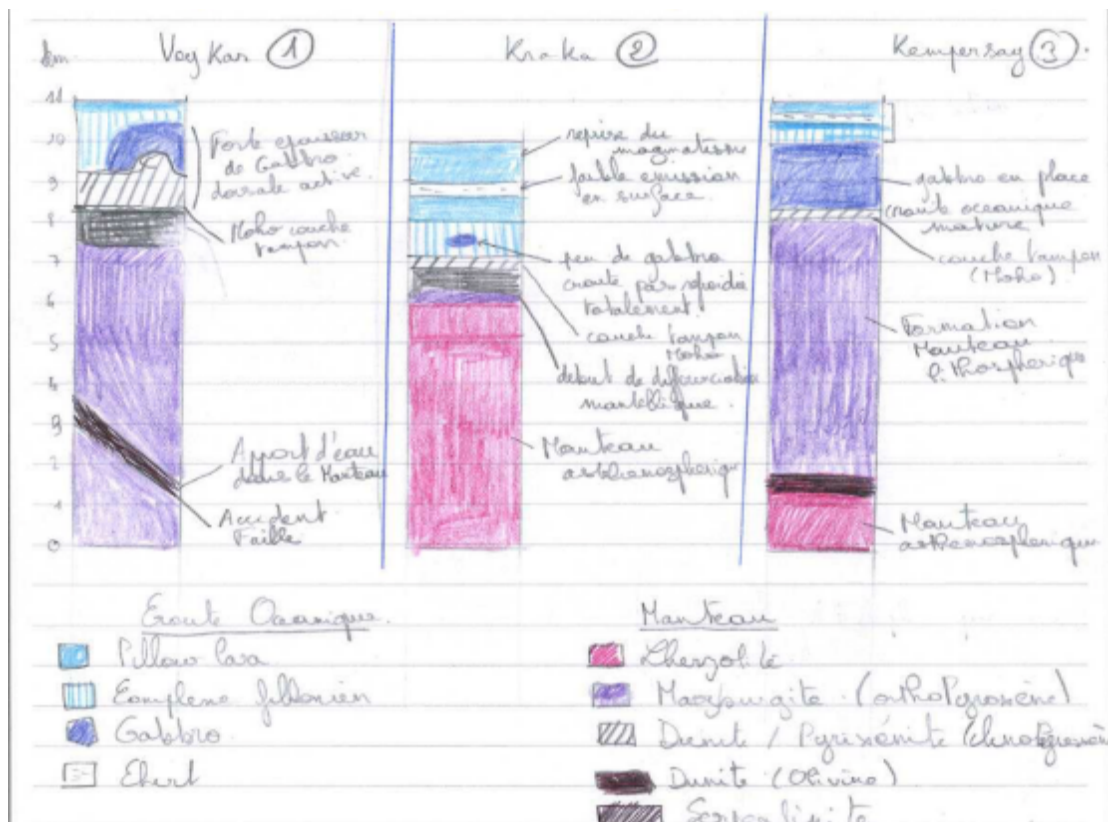 Voykar ①
Kraka ②
Kempersay ③.
km
11
10
9
8
7
6
5
3
1
0
Forte épaisseur
de Gabbro
dorsale active.
Moho couche
tampon.
Apport d'eau
dans le Manteau
Accident
Faille
reprise du
magmatisme
faible émission
en surface.
peu de gabbro
croute pas refroidie
totalement.
couche tampon
Moho
début de différenciation
mantellique.
Manteau
asthénosphérique
gabbro en place
croute océanique
mature.
couche tampon
(Moho)
Formation
Manteau
lithosphérique
Manteau
asthénosphérique
Croute Océanique.
Pillow lava
Complexe filonien
Gabbro
Chert
Manteau
Lherzolite
Harzburgite. (orthopyroxène)
Dunite / Pyroxénite (clinopyroxèn
Dunite (Olivine)
Serpentinite